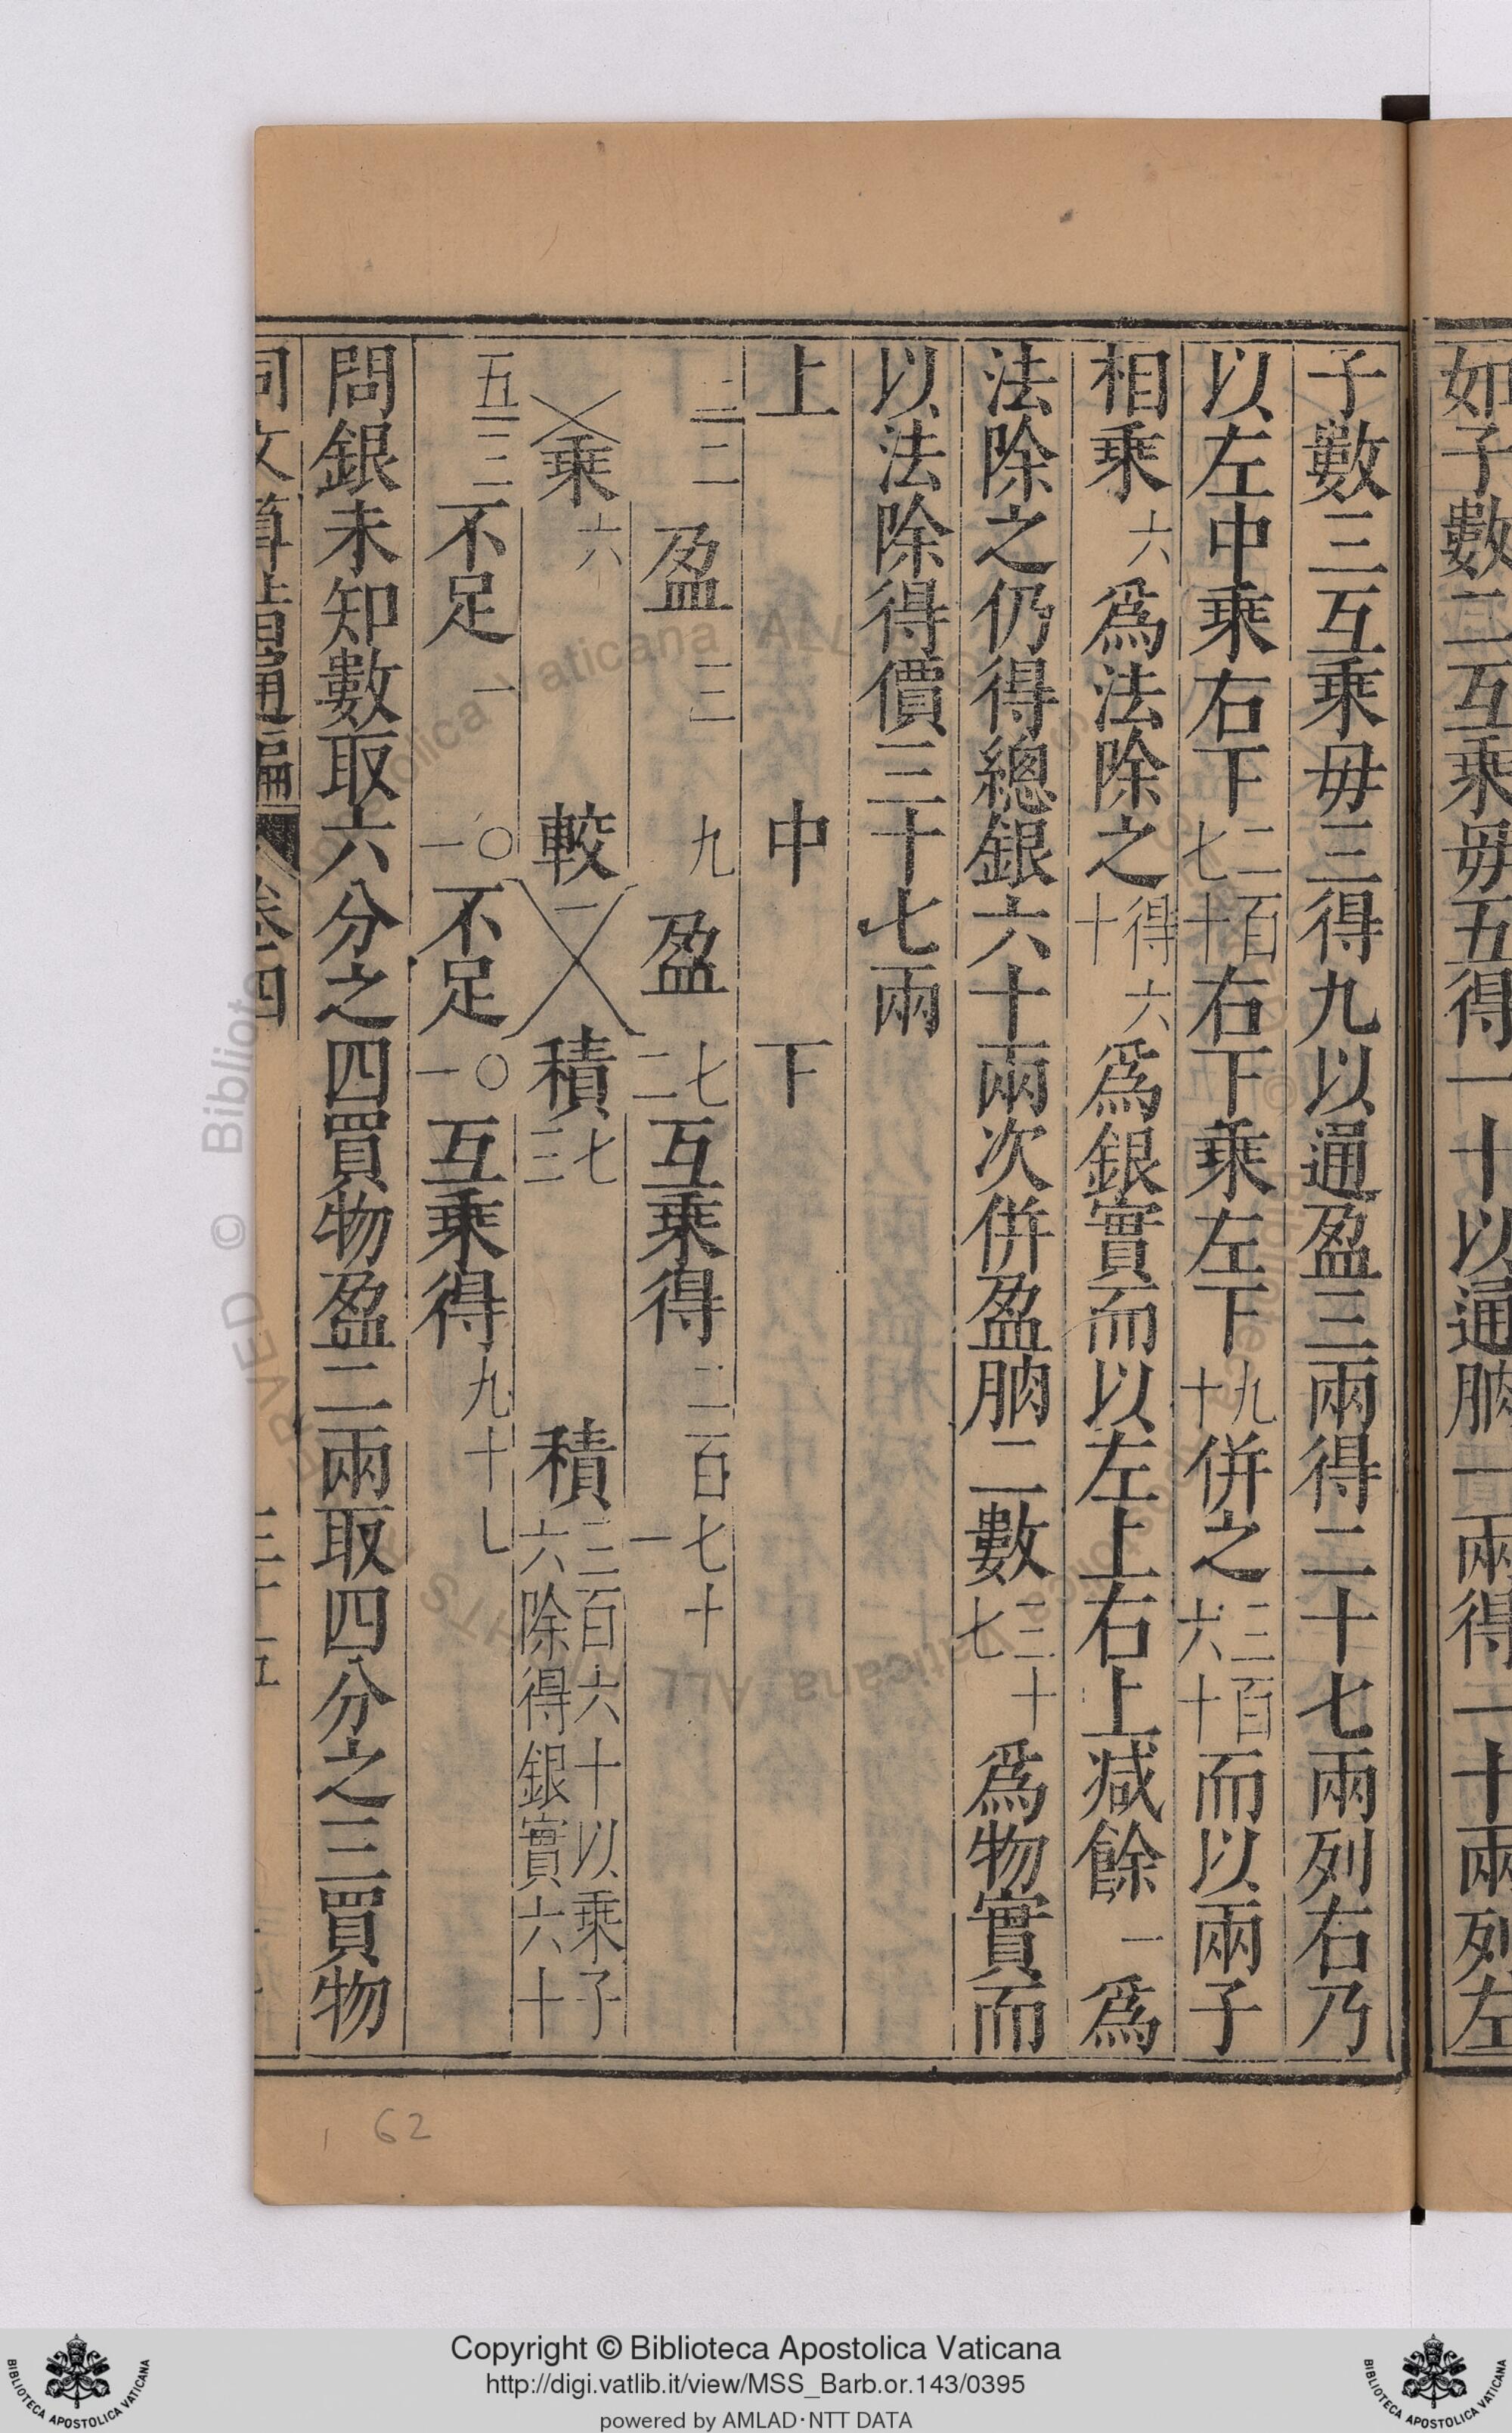 如子數二互乘毋五得一十以通朒一兩得一十兩列左
子數三互乘毋三得九以通盈三兩得二十七兩列右乃
以左中乘右下二百七十右下乘左下九十併之三百六十而以兩子
相乘六爲法除之得六十爲銀實而以左上右上減餘一爲
法除之仍得總銀六十兩次併盈朒二數三十七爲物實而
以法除得價三十七兩
上 中 下
三二 盈三 九 盈二七互乘得二百七十
乘六 較一 積三七 積三百六十以乘子六除得銀實六十
五二 不足一 一〇 不足一〇互乘得九十
問銀未知數取六分之四買物盈二兩取四分之三買物
同文算指通編 卷四 三十五
62
Copyright © Biblioteca Apostolica Vaticana
http://digi.vatlib.it/view/MSS_Barb.or.143/0395
powered by AMLAD·NTT DATA